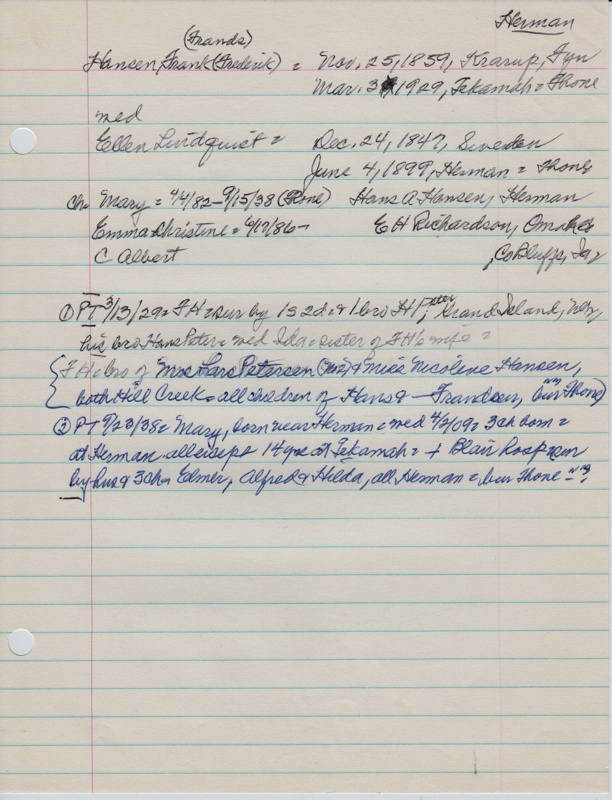 Herman
(Frands)
Hansen, Frank (Frederik) = Nov. 25, 1859, Krarup, Fyn
Mar. 3 1929, Tekamah = Thone
med
Ellen Lindquist = Dec. 24, 1847, Sweden
June 4, 1899, Herman = Thone
ch. Mary = 4/4/82 - 9/15/38 (Thone) Hans A Hansen, Herman
Emma Christine = 4/17/86 - E H Richardson, Omaha
C Albert , Co Bluffs, Ia
① PT 3/13/29 = F H = sur by 1s 2d = & 1 bro H Peter, Grand Island, Neb,
his bro Hans Peter = med Ida = sister of F H's wife =
F H = bro of Mrs Lars Petersen & Miss Nicolene Hansen,
both Hill Creek = all children of Hans & — Frandsen, bur Thone)
② PT 9/23/38 = Mary, born near Herman = med 4/2/09 = 3 ch born =
at Herman all except 14 yrs at Tekamah = + Blair hosp = sur
by hus & 3 ch = Elmer, Alfred & Hilda, all Herman = bur Thone